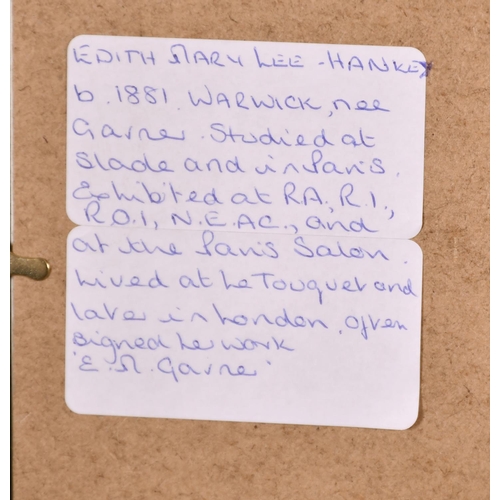 EDITH MARY LEE-HANKEY
b. 1881. WARWICK, nee
Garner. Studied at
Slade and in Paris.
Exhibited at RA, R.I.,
R.O.I, N.E.A.C., and
at the Paris Salon.
Lived at Le Touquet and
later in London. Often
signed he work
'E. M. Garner'